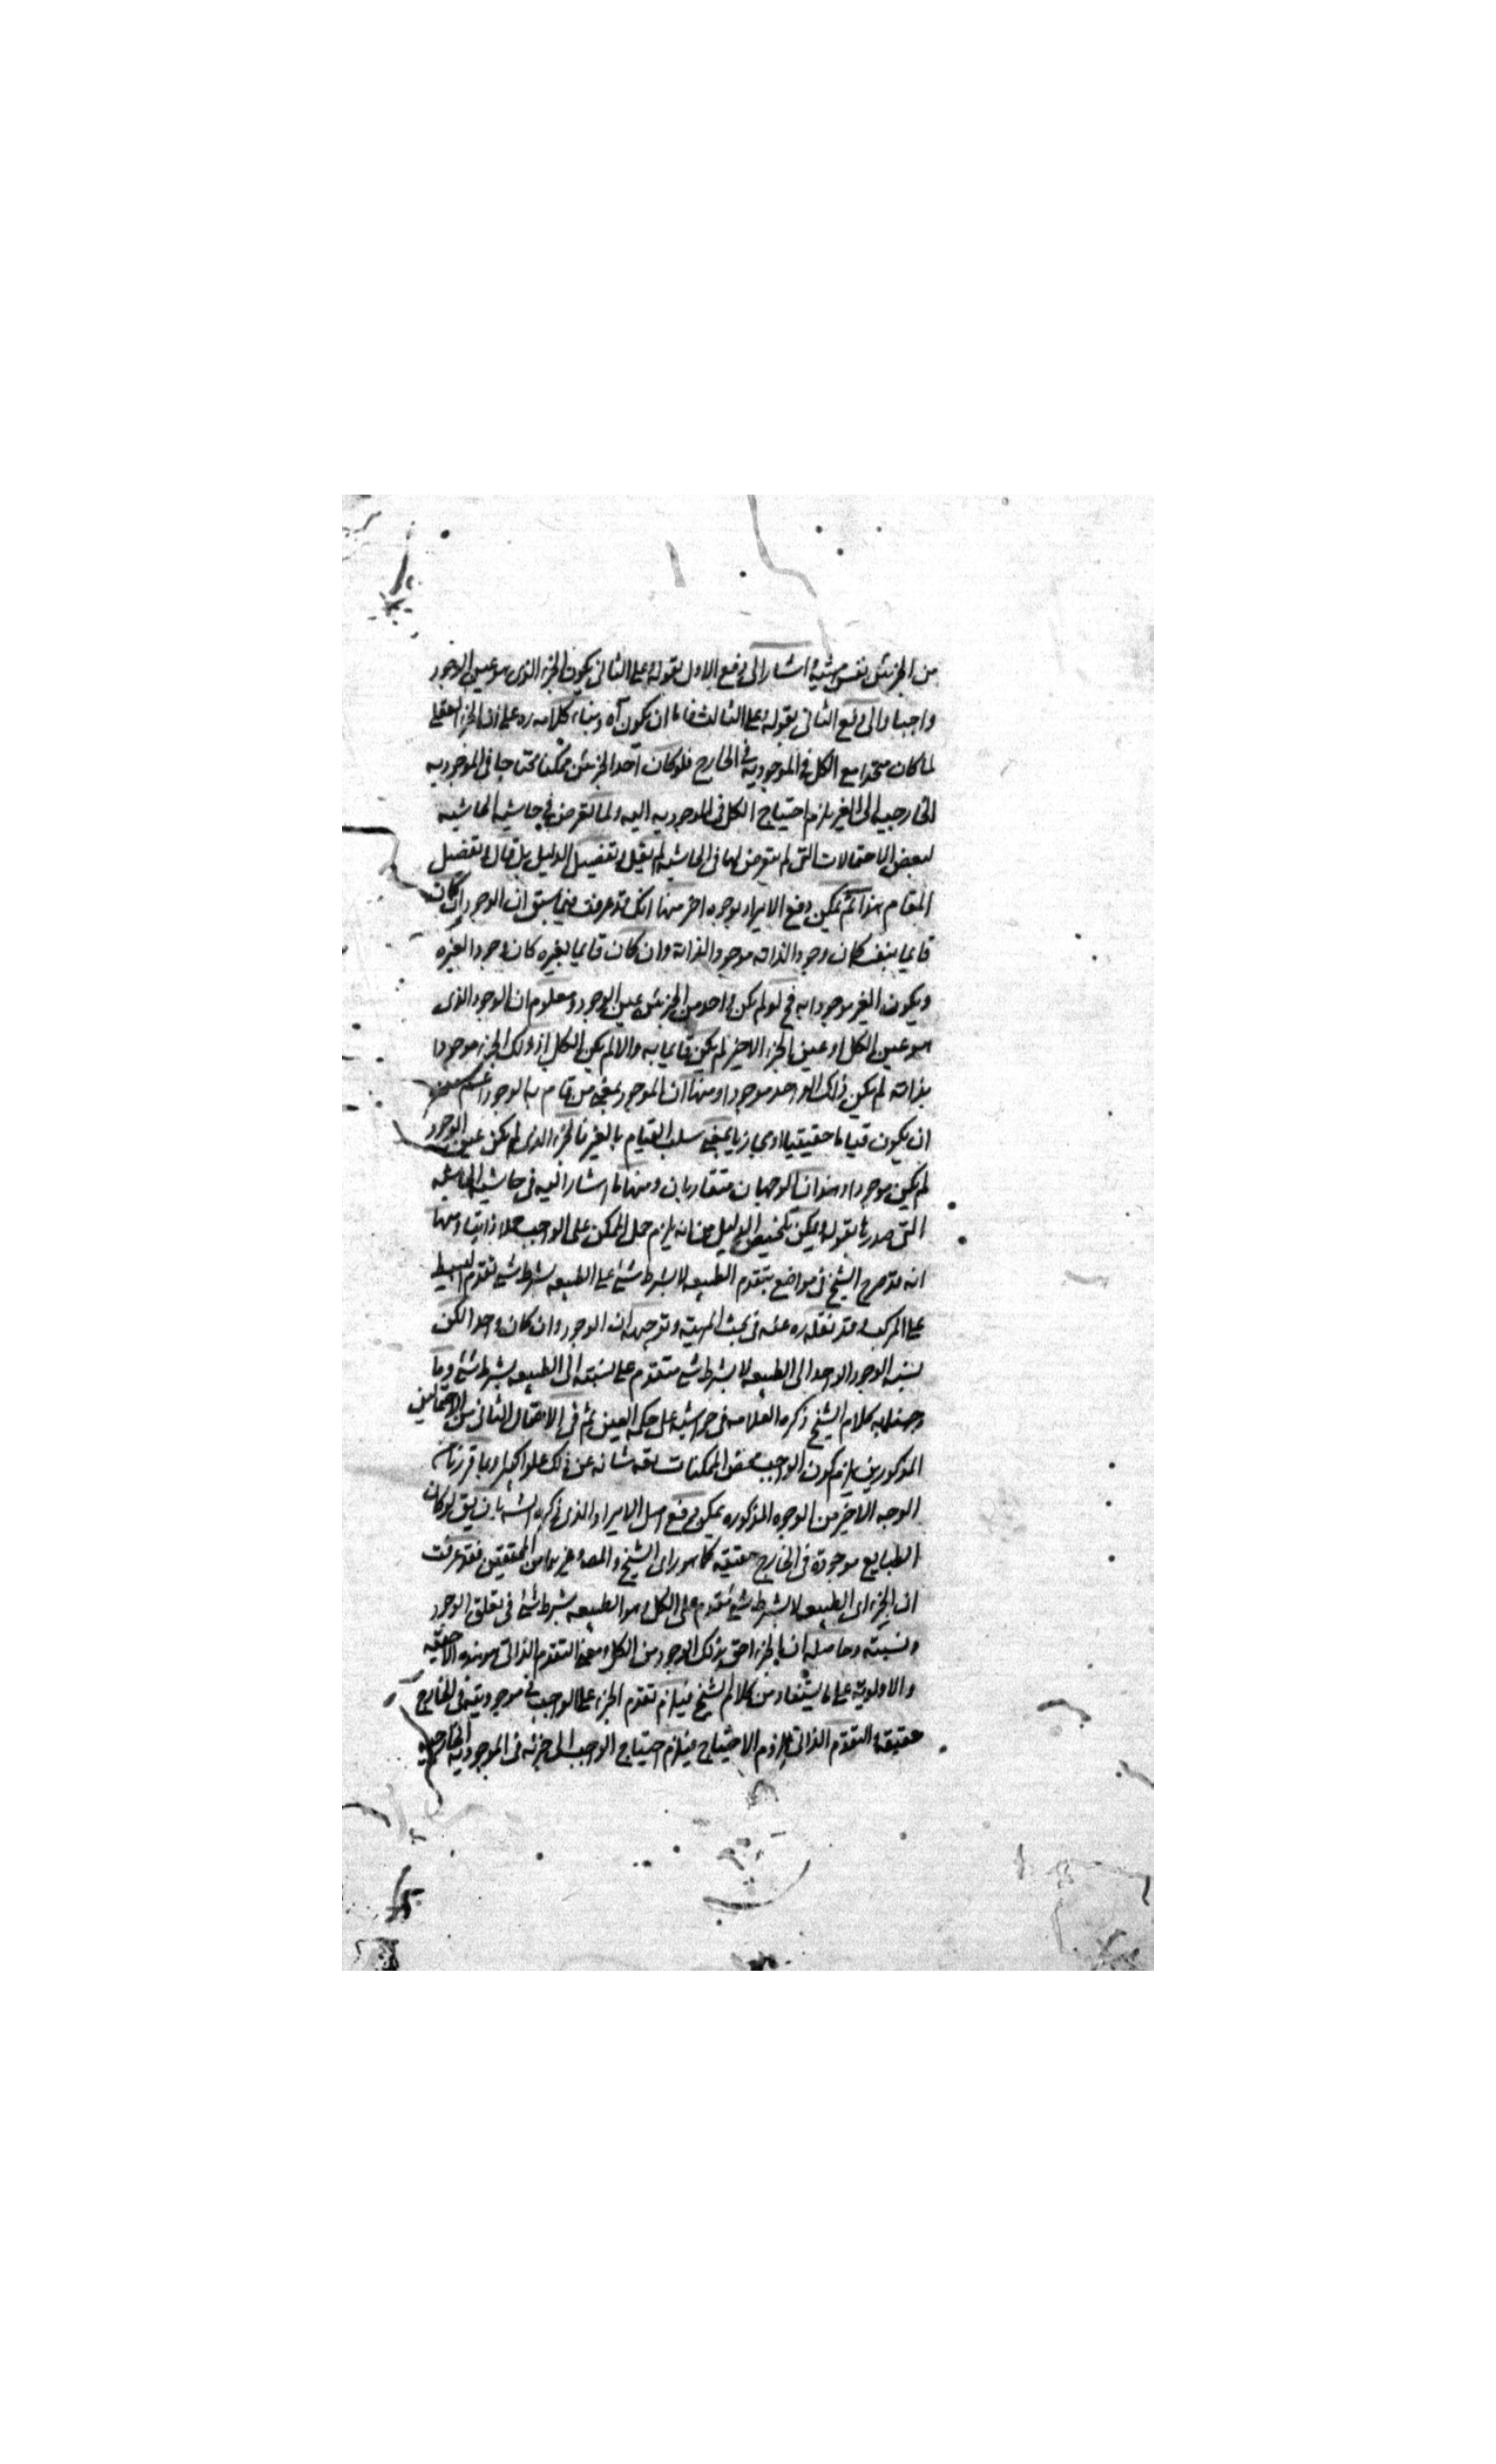 من الجزئين نفس شيئية اشار الى دفع الاول بقوله وعلى الثانى يكون الجزء الذى هو عين الوجود
واجبا والى دفع الثانى بقوله وعلى الثالث فاما ان يكون آه وبناء كلامه ره على ان الجزء العقلى
لما كان متحدا مع الكل فى الموجودية فى الخارج فلو كان احد الجزئين ممكنا محتاجا فى الموجودية
الخارجية الى الغير يلزم احتياج الكل فى الموجودية اليه ولما تعرض فى حاشية الحاشية
لبعض الاحتمالات التى لم يتعرض لها فى الحاشية لم يقل وتفصيل الدليل بل قال وتفصيل
المقام هذا ثم يمكن دفع الايراد بوجوه اخر منها انك قد عرفت فيما سبق ان الوجود ان كان
قايما بنفسه كان وجودا لذاته موجودا لذاته وان كان قايما بغيره كان وجودا لغيره
ويكون الغير موجودا به فح لو لم يكن واحد من الجزئين عين الوجود ومعلوم ان الوجود الذى
هو عين الكل او عين الجزء الاخر لم يكن قايما به والا لم يكن الكل او ذلك الجزء موجودا
بذاته لم يكن ذلك الواحد موجودا ومنها ان الموجود بمعنى من قام به الوجود اعم من
ان يكون قياما حقيقيا او مجازيا بمعنى سلب القيام بالغير فالجزء الذى لم يكن عين الوجود
لم يكن موجودا وهذان الوجهان متقاربان ومنها ما اشار اليه فى حاشية الحاشية
التى صدرها بقوله ويمكن تلخيص الدليل من انه يلزم حمل الممكن على الواجب حملا ذاتيا ومنها
انه قد صرح الشيخ فى مواضع بتقدم الطبيعه لا بشرط شئ على الطبيعه بشرط شئ تقدم البسيط
على المركب وقد نقله ره عنه فى بحث المهية وتوجيهه ان الوجود وان كان واحدا لكن
نسبة الوجود الواحد الى الطبيعه لا بشرط شئ متقدم على نسبته الى الطبيعه بشرط شئ وما
وجهنا به كلام الشيخ ذكره العلامه فى حواشيه على حكمة العين ثم فى الاحتمال الثانى من الاحتمالين
المذكورين يلزم كون الواجب بعض الممكنات تعه شانه عن ذلك علوا كبيرا وبما قررنا
الوجه الاخير من الوجوه المذكوره يمكن دفع اصل الايراد الذى ذكره الش بان يق لو كان
الطبايع موجودة فى الخارج حقيقة كما هو راى الشيخ والمص وغيرهما من المحققين فقد عرفت
ان الجزء اى الطبيعه لا بشرط شئ مقدم على الكل وهو الطبيعه بشرط شئ فى تعلق الوجود
ونسبته وحاصله ان الجزء احق بذلك الوجود من الكل ومعنى التقدم الذاتى هو هذه الاحقية
والاولوية على ما يستفاد من كلام الشيخ فيلزم تقدم الجزء على الواجب فى موجوديته فى الخارج
حقيقة التقدم الذاتى يلزم الاحتياج فيلزم احتياج الواجب الى جزئه فى الموجودية الخارجية